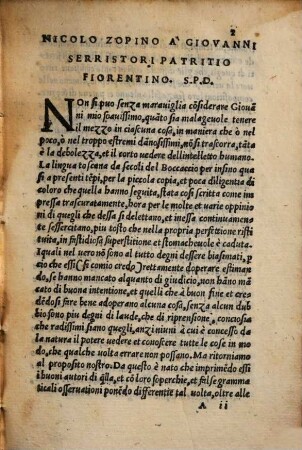 2
NICOLO ZOPINO A' GIOVANNI
SERRISTORI PATRITIO
FIORENTINO. S.P.D.
NON si puo senza marauiglia cōsiderare Giouā
ni mio soauissimo, quāto sia malageuole tenere
il mezzo in ciascuna cosa, in maniera che ò nel
poco, ò nel troppo estremi dānosissimi, nō si trascorra, tāta
è la debolezza, et il corto uedere dell'intelletto humano.
La lingua toscana da secoli del Boccaccio per infino qua
si a presenti tēpi, per la piccola copia, et poca diligentia di
coloro che quella hanno seguita, stata cosi scritta come im
pressa trascuratamente, hora per le molte et uarie oppinio
ni di quegli che dessa si delettano, et inessa continuamen
te s'essercitano, piu tosto che nella propria perfettione risti
tuita, in fastidiosa superstitione et stomacheuole è caduta.
I quali nel uero non sono al tutto degni dessere biasmati, p
cio che essi (si comio credo) rettamente doperare estiman
do, se hanno mancato alquanto di giudicio, non hāno mā
cato di buona intentione, et quelli che à buon fine et cre
dēdosi fare bene adoperano alcuna cosa, senza alcun dub
bio sono piu degni di laude, che di riprensione, conciosia
che radissimi siano quegli, anzi niuni à cui è concesso da
la natura il potere uedere et conoscere tutte le cose in mo
do, che qualche uolta errare non possano. Ma ritorniamo
al proposito nostro. Da questo è nato che imprimēdo essi
i buoni autori di q̄lla, et cō loro soperchie, et false gramma
ticali osseruationi ponēdo differentie tal uolta, oltre alle
A ii